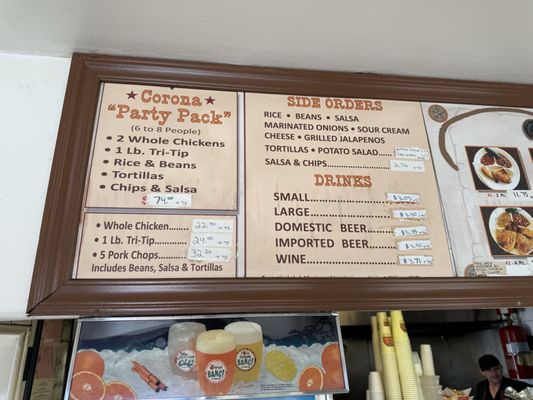 Corona
"Party Pack"
(6 to 8 People)
• 2 Whole Chickens
• 1 Lb. Tri-Tip
• Rice & Beans
• Tortillas
• Chips & Salsa
$74.00 +TX
• Whole Chicken....... 22.50 +TX
• 1 Lb. Tri-Tip............ 24.00 +TX
• 5 Pork Chops.......... 32.50 +TX
Includes Beans, Salsa & Tortillas
SIDE ORDERS
RICE • BEANS • SALSA
MARINATED ONIONS • SOUR CREAM
CHEESE • GRILLED JALAPENOS
TORTILLAS • POTATO SALAD
SALSA & CHIPS
DRINKS
SMALL
LARGE
DOMESTIC BEER
IMPORTED BEER
WINE
BANG!
BANG!